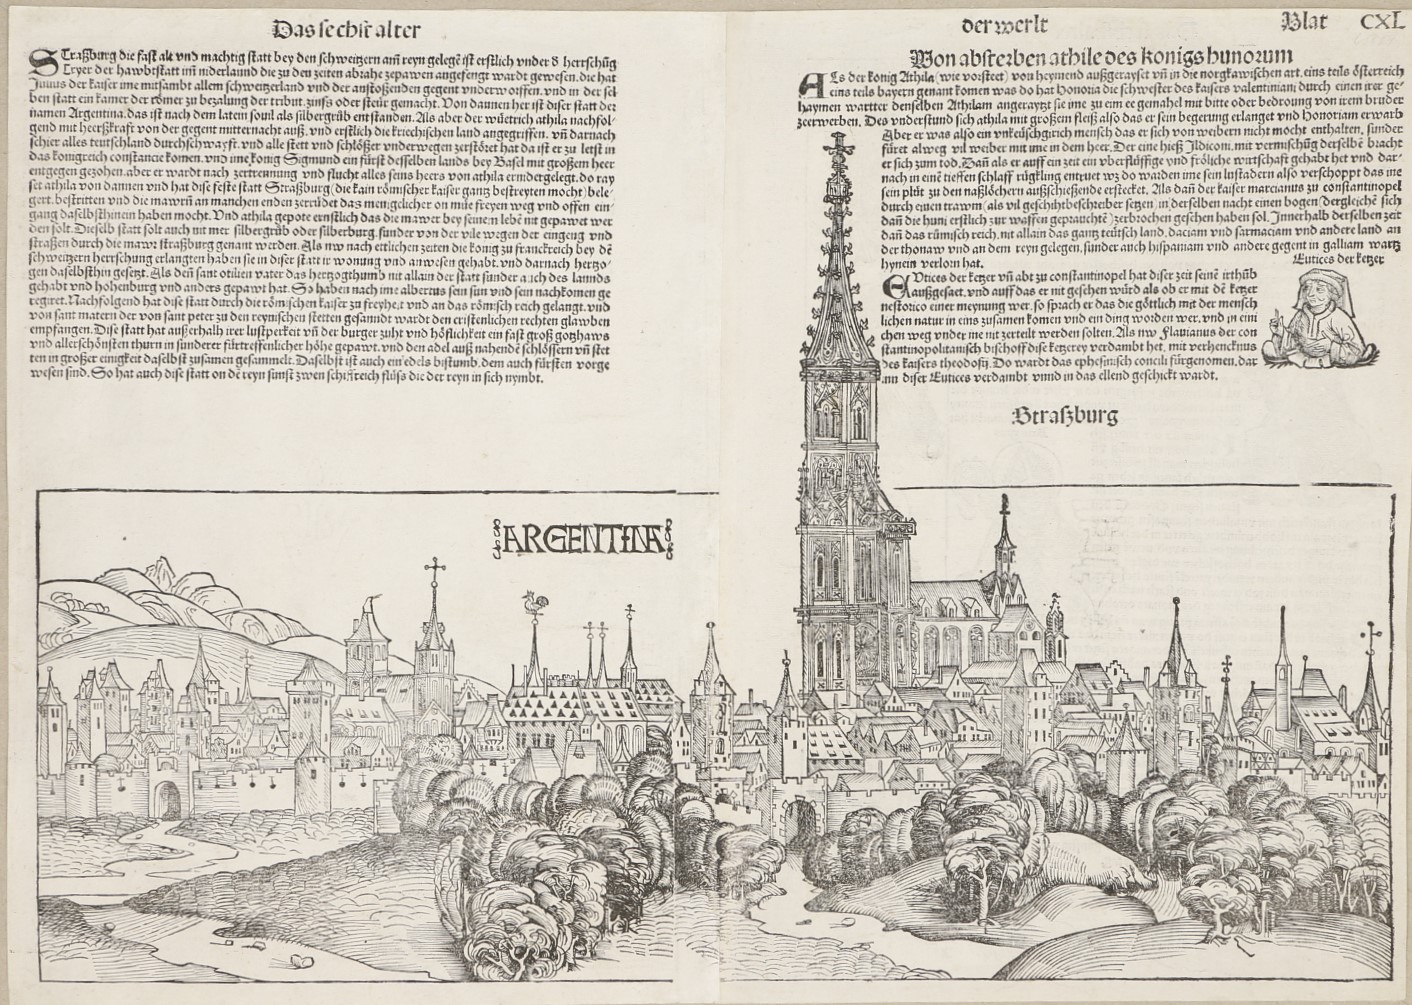 Das sechst alter
Straßburg die fast alt vnd machtig statt bey den schweitzern am̃ reyn gelegẽ ist erstlich vnder ð herrschũg
Tryer der hawbtstatt im̃ niderlannd die zu den zeiten abrahe zepawen angefengt wardt gewesen. die hat
Julius der kaiser ime mitsambt allem schweitzerland vnd der anstoßenden gegent vnderworffen. vnd in der sel
ben statt ein kamer der römer zu bezalung der tribut. zinß oder stewr gemacht. Von dannen her ist diser statt der
namen Argentina. das ist nach dem latein souil als silbergrůb entstanden. Als aber der wůetrich athila nachfol-
gend mit heerßkraft von der gegent mitternacht auß. vnd erstlich die kriechischen land angegriffen. vñ darnach
schier alles teutschland durchschwayft. vnd alle stett vnd schlößer vnderwegen zerstöret hat da ist er zu letst in
das königreich constancie komen. vnd ime könig Sigmund ein fürst desselben lands bey Basel mit großem heer
entgegen gezohen. aber er wardt nach zertrennung vnd flucht alles seins heers von athila ernidergelegt. do ray
set athila von dannen vnd hat dise feste statt Straßburg (die kain römischer kaiser gantz bestreyten mocht) bele-
gert. bestritten vnd die mawrñ an manchen enden zerrüdet das menigclicher on műe freyen weg vnd offen ein-
gang daselbsthinein haben mocht. Vnd athila gepote ernstlich das die mawer bey seinem lebẽ nit gepawet wer
den solt. Dieselb statt solt auch nit mer silbergrüb oder silberburg. sunder von der vile wegen der eingeng vnd
straßen durch die mawr straßburg genant werden. Als nw nach ettlichen zeiten die könig zu franckreich bey dẽ
schweitzern herrschung erlangten haben sie in diser statt ir wonung vnd anwesen gehabt. vnd darnach hertzo-
gen daselbsthin gesetzt. Als deñ sant otilien vater das hertzogthumb nit allain der statt sunder auch des lannds
gehabt vnd hohenburg vnd anders gepawt hat. So haben nach ime albertus sein sun vnd sein nachkomen ge
regiret. Nachfolgend hat dise statt durch die römischen kaiser zu freyheit vnd an das römisch reich gelangt. vnd
von sant matern der von sant peter zu den reynischen stetten gesanndt wardt den cristenlichen rechten glawben
empfangen. Dise statt hat außerhalb irer lustperkeit vñ der burger zuht vnd höflichkeit ein fast groß gotzhaws
vnd allerschönsten thurn in sunderer fürtreffenlicher höhe gepawt. vnd den adel auß nahenden schlössern vñ stet
ten in großer einigkeit daselbst zusamen gesammelt. Daselbst ist auch ein edels bistumb. dem auch fürsten vorge
wesen sind. So hat auch dise statt on dẽ reyn sunst zwen schiffreich flüss die der reyn in sich nymbt.
ARGENTINA
der werlt
Blat CXL
Von absterben athile des königs hunorum
Als der könig Athila (wie vorsteet) von heymend außgerayset vñ in die norgkawischen art. eins teils österreich
eins teils bayern genant komen was do hat Honoria die schwester des kaisers valentiniani durch einen irer ge-
haymen wartter denselben Athilam angerayzt sie ime zu eim ee gemahel mit bitte oder bedroung von irem bruder
zeerwerben. Des vnderstund sich athila mit großem fleiß also das er sein begerung erlanget vnd Honoriam erwarb
Aber er was also ein vnkeüschgirich mensch das er sich von weibern nicht mocht enthalten. sunder
füret alweg vil weiber mit ime in dem heer. Der eine hieß Jldiconi. mit vermischũg derselbẽ bracht
er sich zum tod. Dañ als er auff ein zeit ein vberflüffige vnd fröliche wirtschaft gehabt het vnd dar-
nach in eine tieffen schlaff rügkling entruet wz do warden ime sein luftadern also verschoppt das ine
sein plůt zu den naßlöchern außschießende erstecket. Als dañ der kaiser marcianus zu constantinopel
durch einen trawm (als vil geschihtbeschreiber setzen) in derselben nacht einen bogen (dergleichẽ sich
dañ die huni erstlich zur waffen geprauchtẽ) zerbrochen gesehen haben sol. Jnnerhalb derselben zeit
dañ das römisch reich. nit allain das gantz teütsch land. daciam vnd sarmaciam vnd andere land an
der thonaw vnd an dem reyn gelegen. sunder auch hispaniam vnd andere gegent in galliam wartz
hynein verlorn hat.
Eutices der ketzer
Eutices der ketzer vñ abt zu constantinopel hat diser zeit seinẽ irthũb
außgesaet. vnd auff das er nit gesehen würd als ob er mit dẽ ketzer
nestorico einer meynung wer. so sprach er das die götlich mit der mensch
lichen natur in eins zusamen komen vnd ein ding worden wer. vnd in eini
chen weg vnder ine nit zerteilt werden solten. Als nw Flauianus der con
stantinopolitanisch bischoff dise ketzerey verdambt het. mit verhencknus
des kaisers theodosij. Do wardt das ephesinisch concili fürgenomen. dar
inn diser Eutices verdambt vnnd in das ellend geschickt wardt.
Straßburg